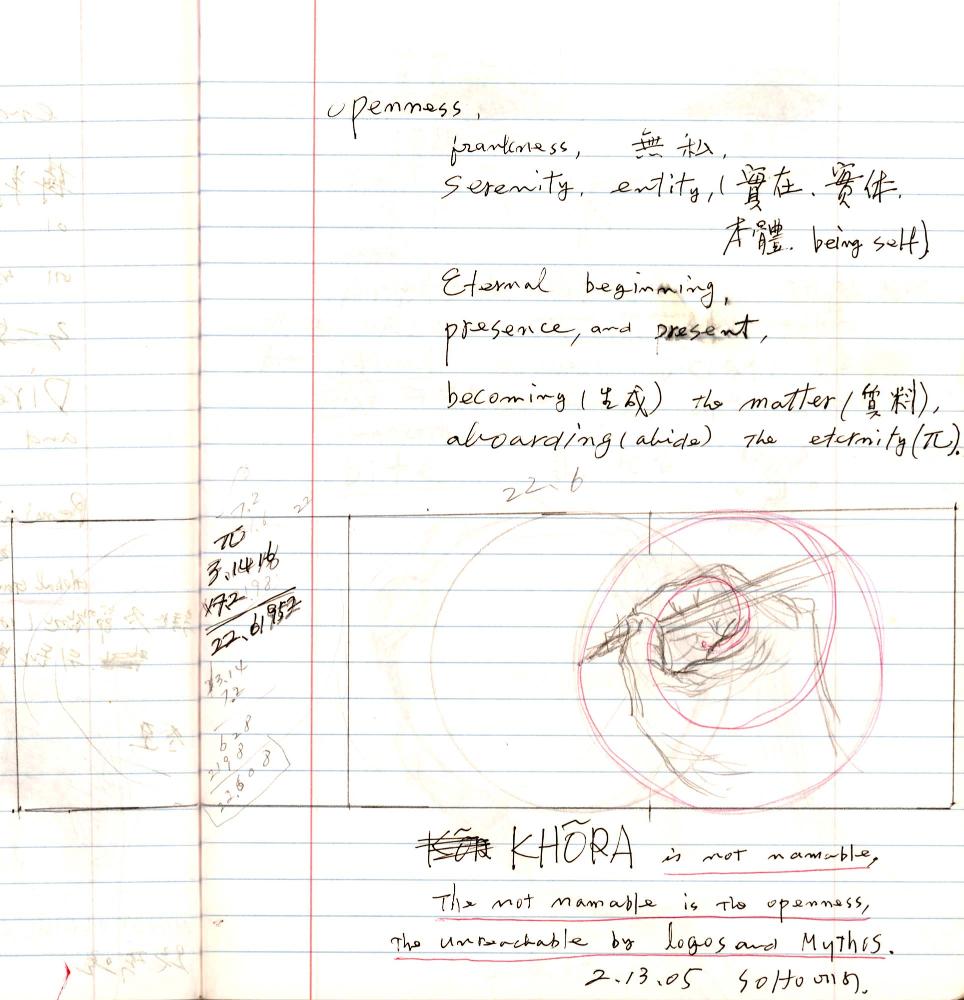 openness,
frankness, 無私,
Serenity, entity, (實在, 實体,
本體. being self)
Eternal beginning,
presence, and present,
becoming (生成) the matter (質料),
aboarding (abide) the eternity (π).
22.6
π
3.1416
x7.2
22.61952
3.14
7.2
628
2198
22.608
KHÕRA is not namable,
The not namable is the openness,
the unreachable by logos and Mythos.
2.13.05